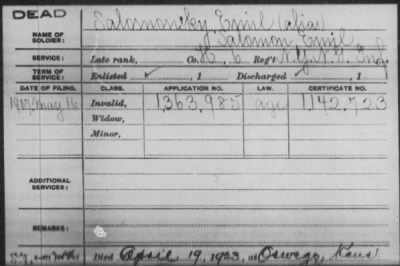 DEAD
NAME OF SOLDIER: Salomonsky, Emil (alias)
Salomon Emil
SERVICE: Late rank, Co. K, 6 Reg't N.Y.N.G. Inf.
TERM OF SERVICE: Enlisted ✓, 1 Discharged ✓, 1
DATE OF FILING. CLASS. APPLICATION NO. LAW. CERTIFICATE NO.
1917 May 16 Invalid, 1,363,985 age 1,142,723
Widow,
Minor,
ADDITIONAL SERVICES:
REMARKS:
Died April 19, 1933, at Oswego, Kans.